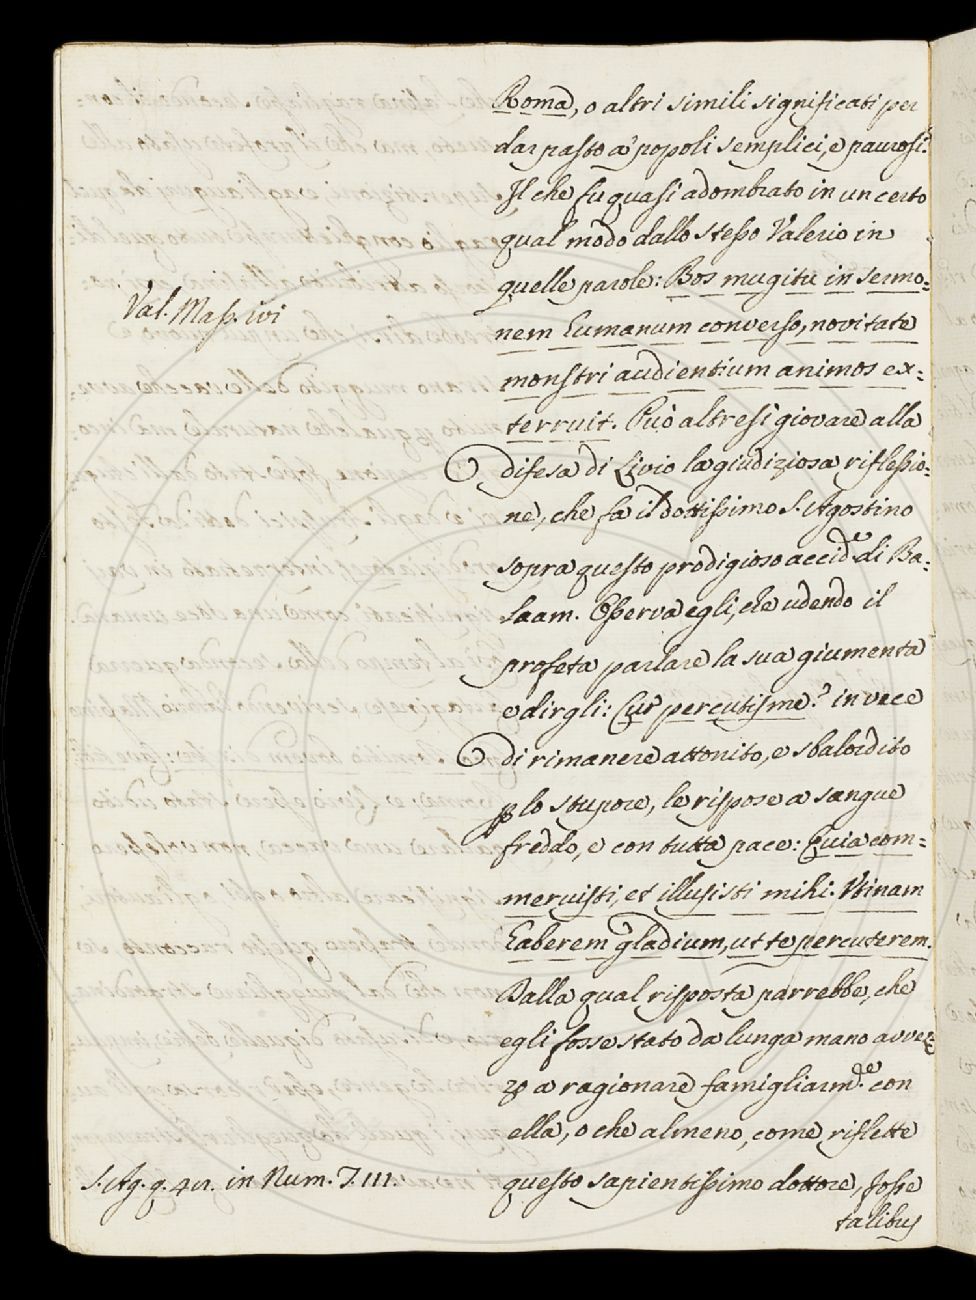 Roma, o altri simili significati per
dar pasto a' popoli semplici, e paurosi.
Il che fu quasi adombrato in un certo
qual modo dallo stesso Valerio in
quelle parole: Bos mugitu in sermo=
Val. Mass. ivi
nem humanum converso, novitate
monstri audientium animos ex=
terruit. Può altresì giovare alla
difesa di Livio la giudiziosa riflessio=
ne, che fa il dottissimo S. Agostino
sopra questo prodigioso accid.e di Ba=
laam. Osserva egli, che udendo il
profeta parlare la sua giumenta
e dirgli: Cur percutis me? in vece
di rimanere attonito, e sbalordito
p lo stupore, le rispose a sangue
freddo, e con tutta pace: Quia com=
meruisti, et illusisti mihi. Utinam
haberem gladium, ut te percuterem.
Dalla qual risposta parrebbe, che
egli fosse stato da lunga mano avvez=
zo a ragionare famigliarm.e con
ella, o che almeno, come riflette
S. Ag. q. in Num. T. III.
questo sapientissimo dottore, fosse
talibus